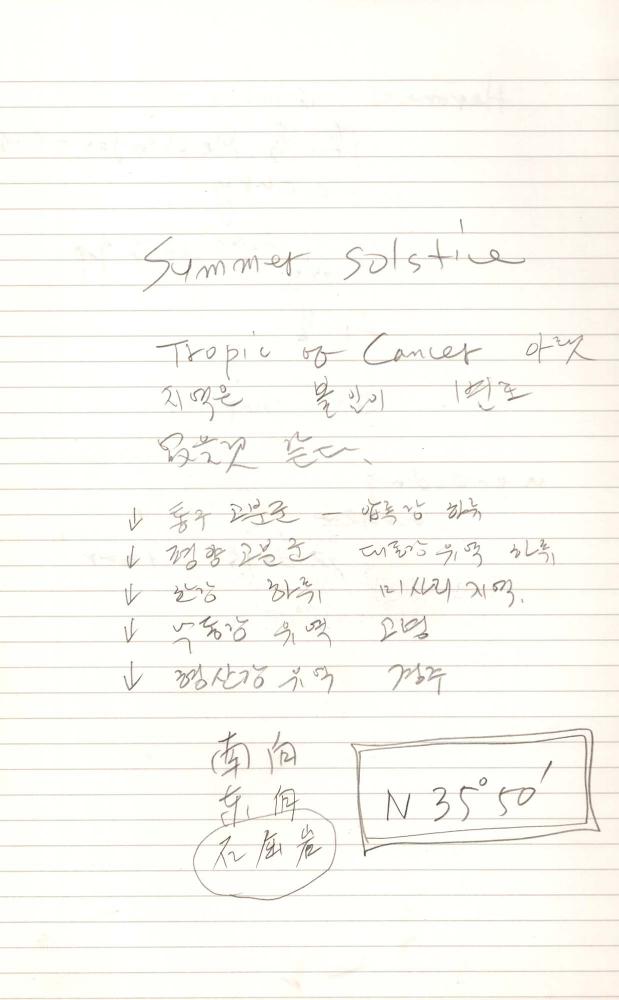 Summer solstice
Tropic of Cancer 아랫
지역은 볼일이 1번도
없는것 같다.
↓ 통구 고분군 - 압록강 하류
↓ 평양 고분군 대동강 유역 하류
↓ 한강 하류 미사리 지역.
↓ 낙동강 유역 고령
↓ 형산강 유역 경주
南向
东向
石屈岩
N 35° 50′